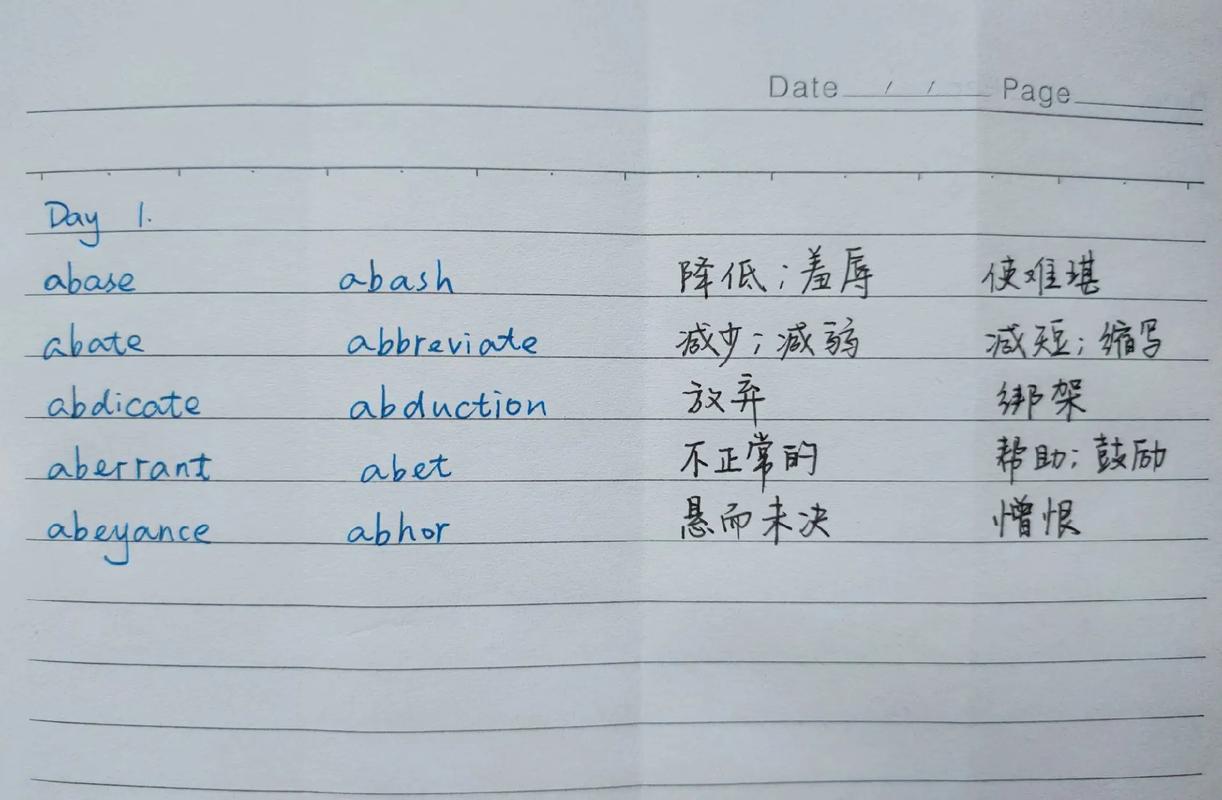 Date / / Page
Day 1.
abase abash 降低；羞辱 使难堪
abate abbreviate 减少；减弱 减短；缩写
abdicate abduction 放弃 绑架
aberrant abet 不正常的 帮助；鼓励
abeyance abhor 悬而未决 憎恨